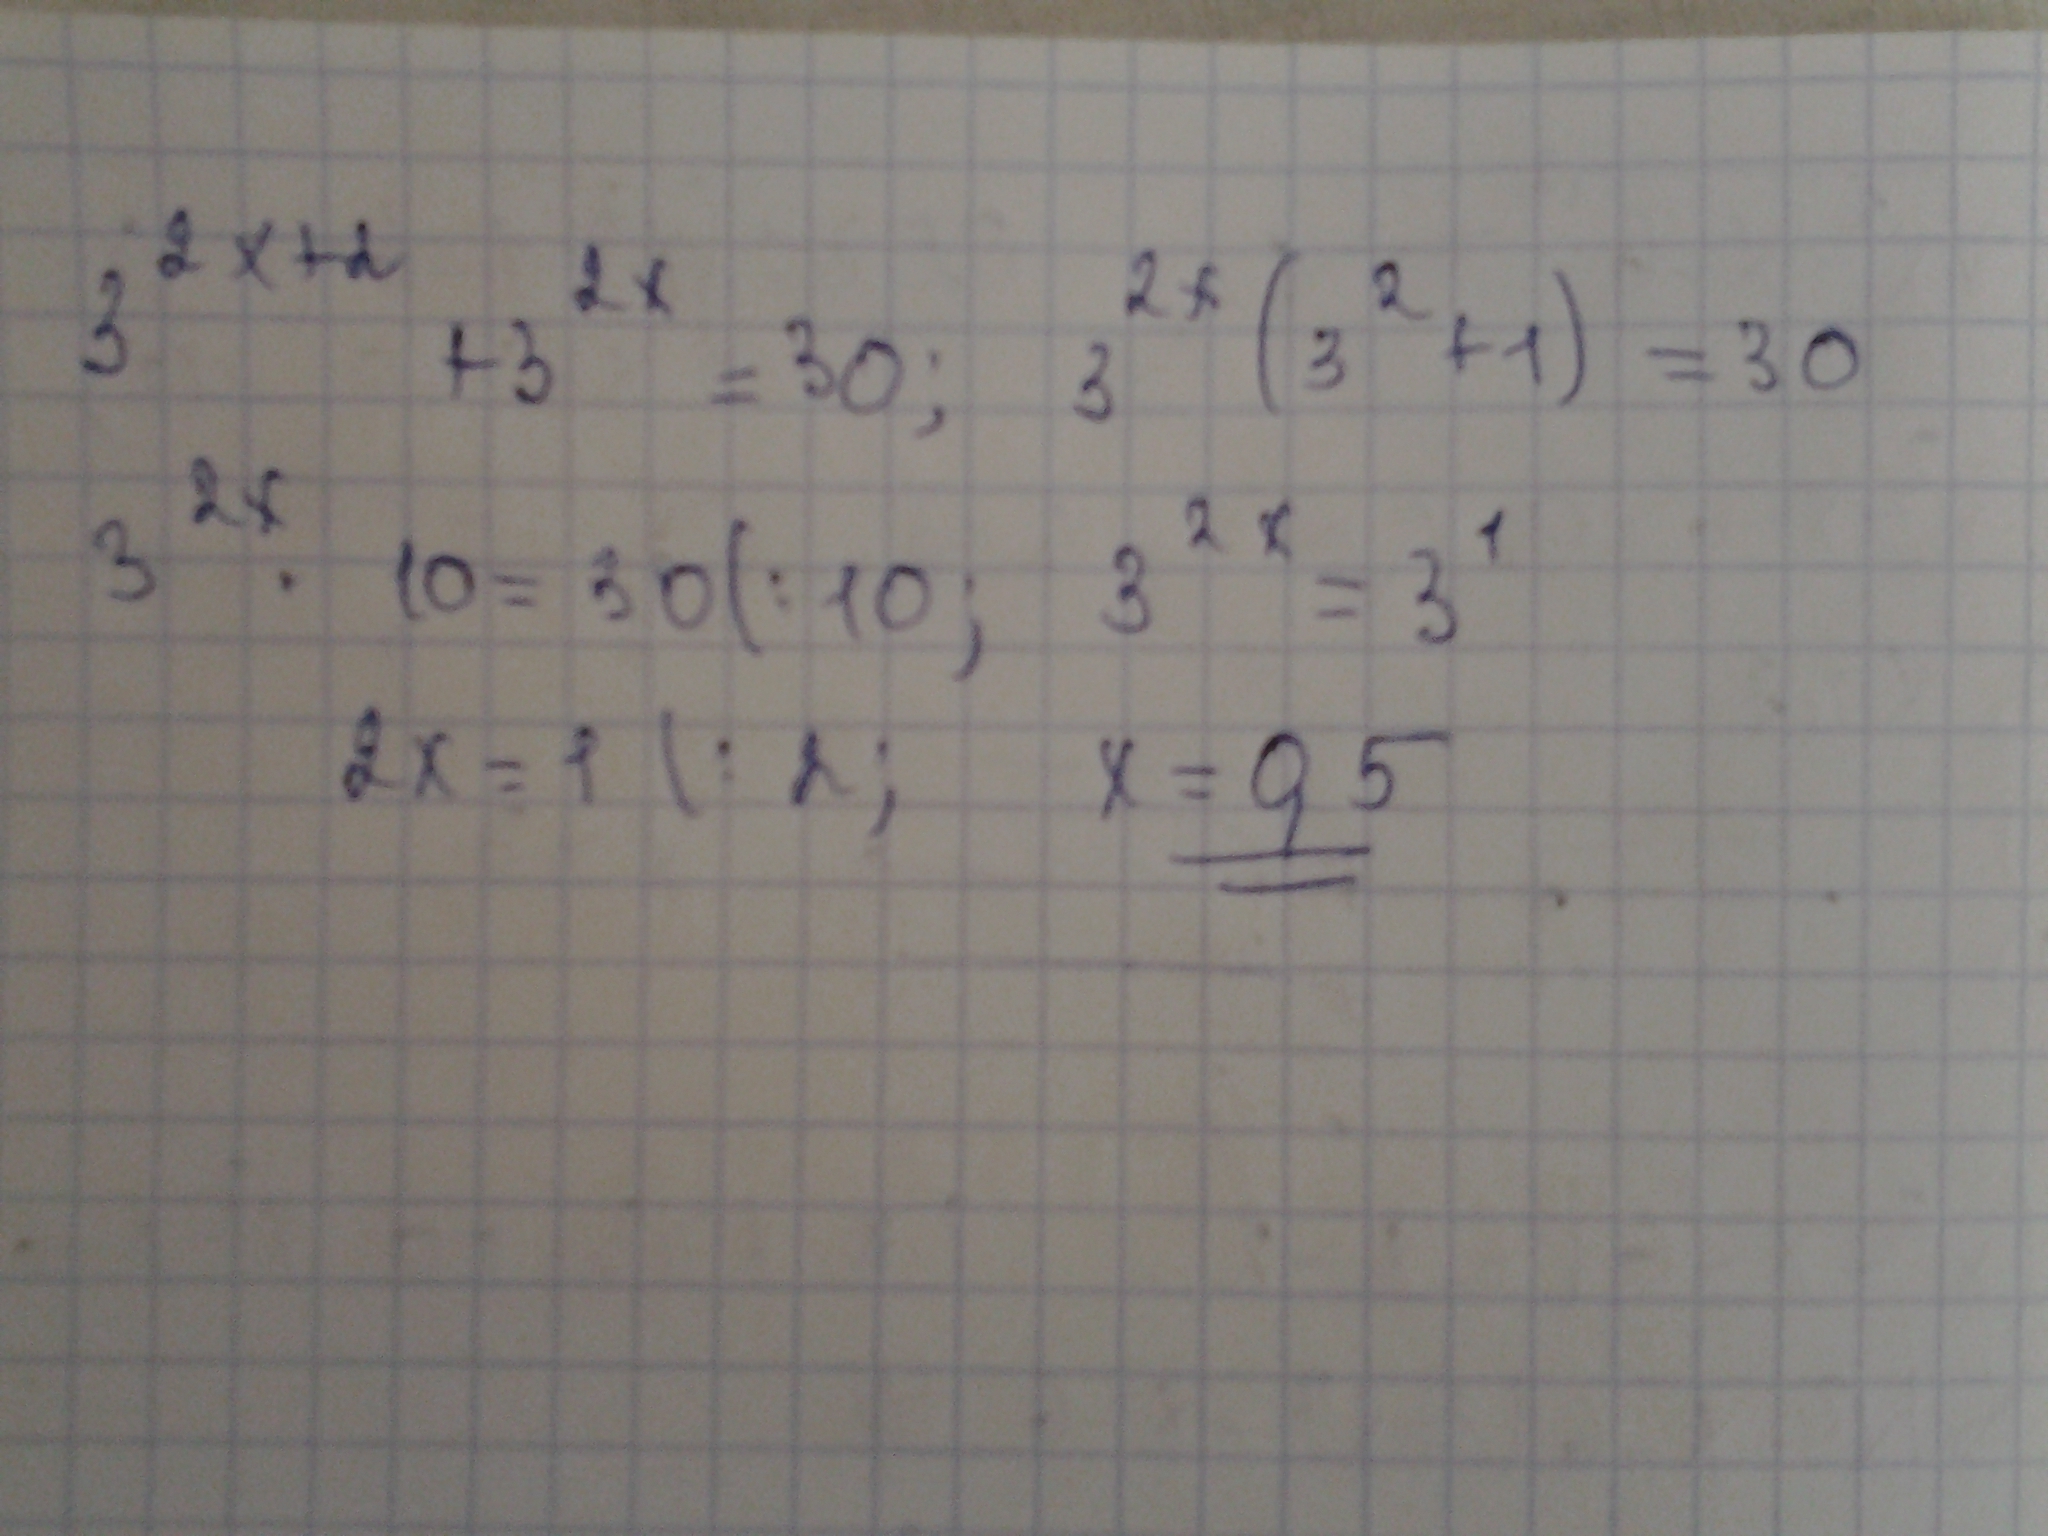 3^{2x+2} + 3^{2x} = 30; 3^{2x}(3^2 + 1) = 30
3^{2x} · 10 = 30 (: 10; 3^{2x} = 3^1
2x = 1 (: 2; x = 0,5